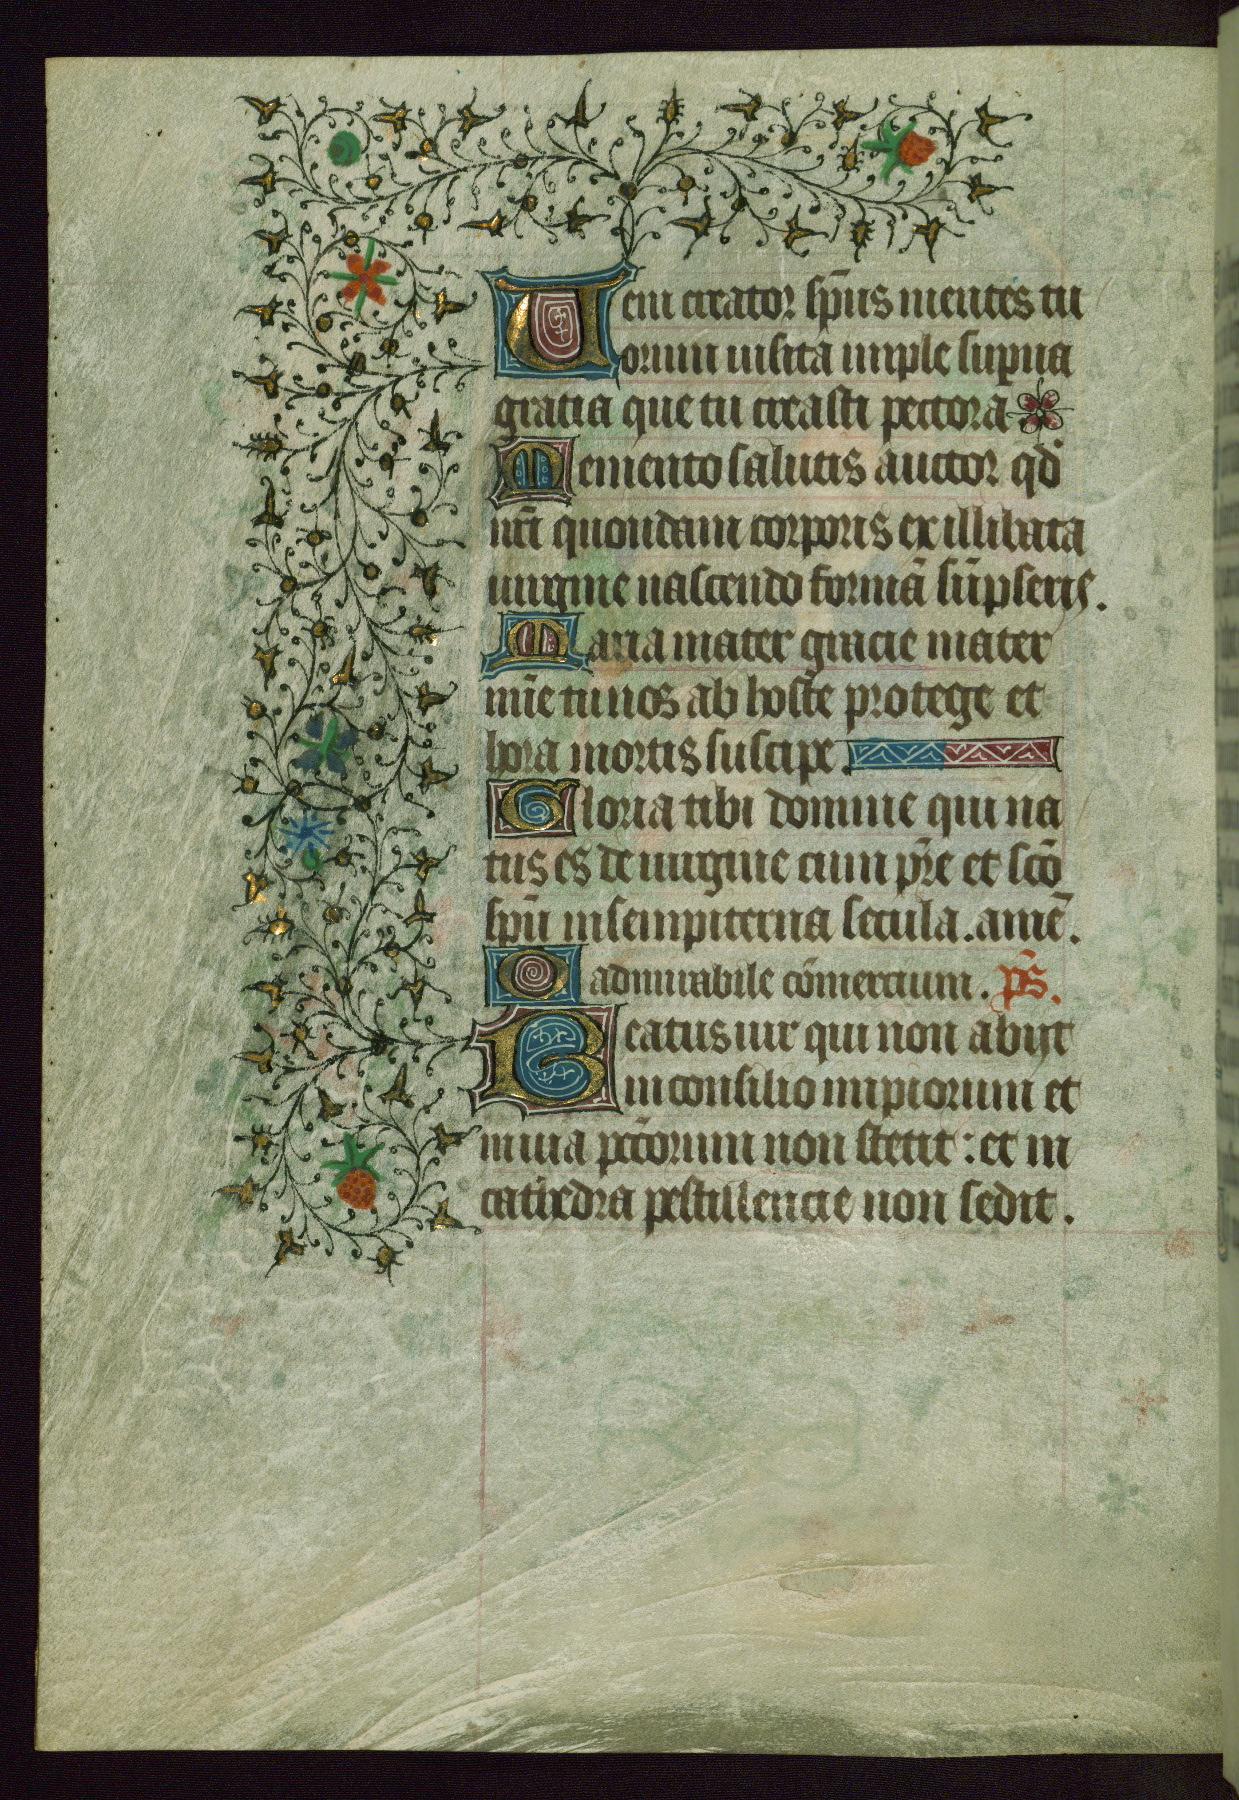 Veni creator sp̄us mentes tu
orum uisita imple sup̄na
gratia que tu creasti pectora
Memento salutis auctor qd̄
nr̄i quondam corporis ex illibata
uirgine nascendo formā sūpseris.
Maria mater gracie mater
mīe tu nos ab hoste protege et
hora mortis suscipe.
Gloria tibi domine qui na
tus es de uirgine cum pr̄e et scō
spū in sempiterna secula. amē.
O admirabile cōmercium. ps̄.
Beatus uir qui non abijt
in consilio impiorum et
in uia pct̄orum non stetit: et in
cathedra pestillencie non sedit.